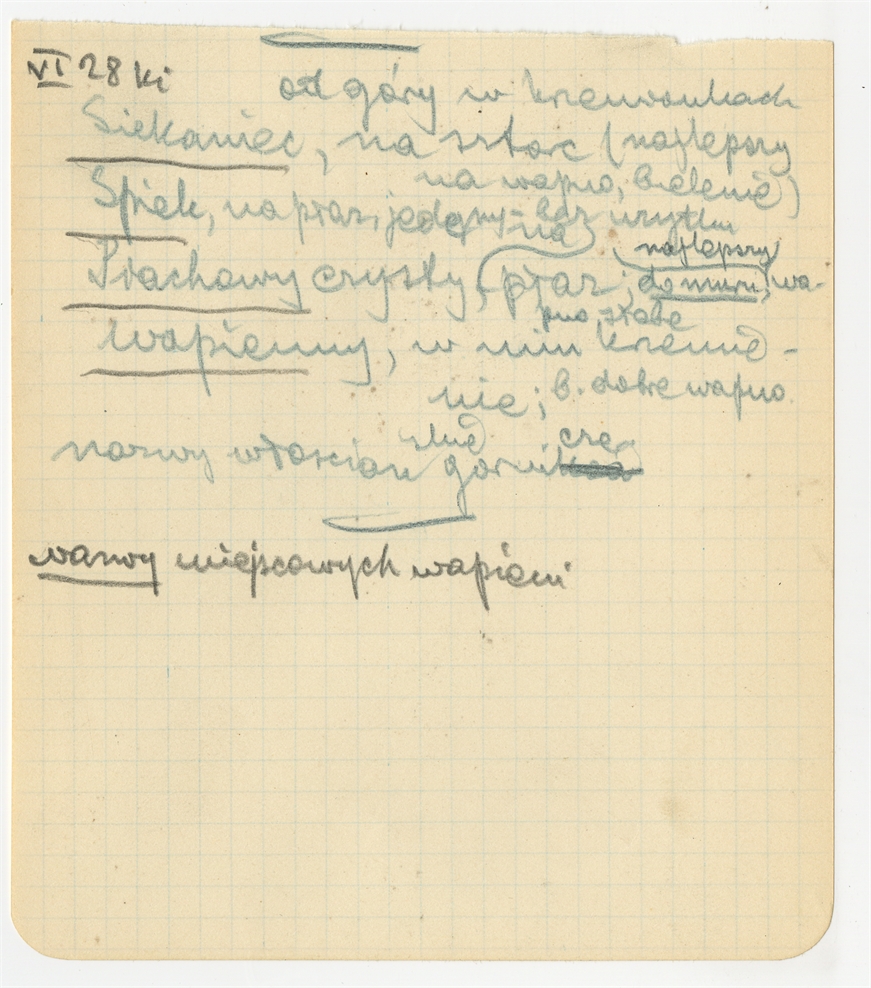 VI 28 ki
od góry w krzemionkach
Siekaniec, na sztorc (najlepszy
na wapno, bielenie)
Śpiek, na płaz, jedyny na bez użytku
Piachowy czysty, płaz; najlepszy do muru, wa-
pno słabe
Wapienny, w nim krzemie-
nie; b. dobre wapno
nazwy włościan górni cze
nazwy miejscowych wapieni